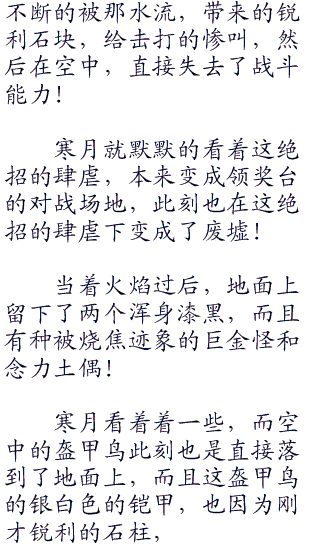 不断的被那水流，带来的锐
利石块，给击打的惨叫，然
后在空中，直接失去了战斗
能力！
寒月就默默的看着这绝
招的肆虐，本来变成领奖台
的对战场地，此刻也在这绝
招的肆虐下变成了废墟！
当着火焰过后，地面上
留下了两个浑身漆黑，而且
有种被烧焦迹象的巨金怪和
念力土偶！
寒月看着着一些，而空
中的盔甲鸟此刻也是直接落
到了地面上，而且这盔甲鸟
的银白色的铠甲，也因为刚
才锐利的石柱，